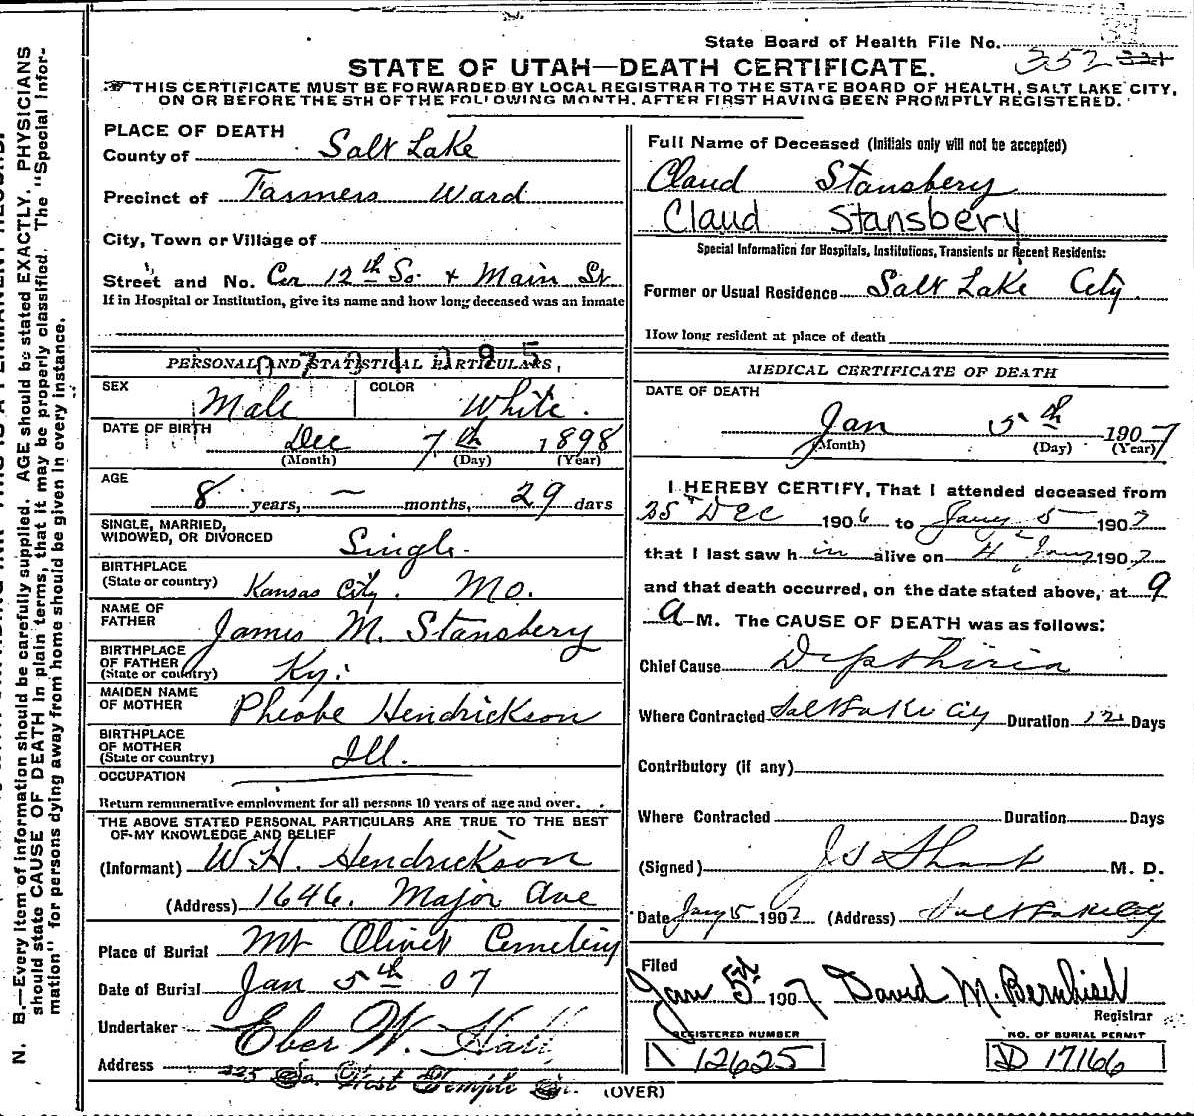 State Board of Health File No. 352
STATE OF UTAH—DEATH CERTIFICATE.
THIS CERTIFICATE MUST BE FORWARDED BY LOCAL REGISTRAR TO THE STATE BOARD OF HEALTH, SALT LAKE CITY,
ON OR BEFORE THE 5TH OF THE FOLLOWING MONTH, AFTER FIRST HAVING BEEN PROMPTLY REGISTERED.
PLACE OF DEATH
County of Salt Lake
Precinct of Farmers Ward
City, Town or Village of
Street and No. Cor 12th So. + Main St
If in Hospital or Institution, give its name and how long deceased was an inmate
PERSONAL AND STATISTICAL PARTICULARS
SEX Male COLOR White.
DATE OF BIRTH Dec 7th 1898
(Month) (Day) (Year)
AGE
8 years, — months, 29 days
SINGLE, MARRIED,
WIDOWED, OR DIVORCED Single
BIRTHPLACE
(State or country) Kansas City. Mo.
NAME OF
FATHER James M. Stansbery
BIRTHPLACE
OF FATHER
(State or country) Ky.
MAIDEN NAME
OF MOTHER Pheobe Hendrickson
BIRTHPLACE
OF MOTHER
(State or country) Ill.
OCCUPATION
Return remunerative employment for all persons 10 years of age and over.
THE ABOVE STATED PERSONAL PARTICULARS ARE TRUE TO THE BEST
OF MY KNOWLEDGE AND BELIEF
(Informant) W. H. Hendrickson
(Address) 1646. Major Ave
Place of Burial Mt Olivet Cemetery
Date of Burial Jan 5th 07
Undertaker Eber W. Hall
Address 225 So. West Temple St.
Full Name of Deceased (Initials only will not be accepted)
Claud Stansbery
Claud Stansbery
Special Information for Hospitals, Institutions, Transients or Recent Residents:
Former or Usual Residence Salt Lake City.
How long resident at place of death
MEDICAL CERTIFICATE OF DEATH
DATE OF DEATH
Jan 5th 1907
(Month) (Day) (Year)
I HEREBY CERTIFY, That I attended deceased from
25 Dec 1906 to Jany 5 1907
that I last saw him alive on 4 Jany 1907
and that death occurred, on the date stated above, at 9
a M. The CAUSE OF DEATH was as follows:
Chief Cause Dipthiria
Where Contracted Salt Lake City Duration 12 Days
Contributory (if any)
Where Contracted Duration Days
(Signed) M. D.
Date Jany 5 1907 (Address) Salt Lake City
Filed
Jan 5th 1907 David M. Bernhisel
Registrar
REGISTERED NUMBER NO. OF BURIAL PERMIT
12625 D 17166
(OVER)
N. B.—Every item of information should be carefully supplied. AGE should be stated EXACTLY. PHYSICIANS
should state CAUSE OF DEATH in plain terms, that it may be properly classified. The "Special Infor-
mation" for persons dying away from home should be given in every instance.